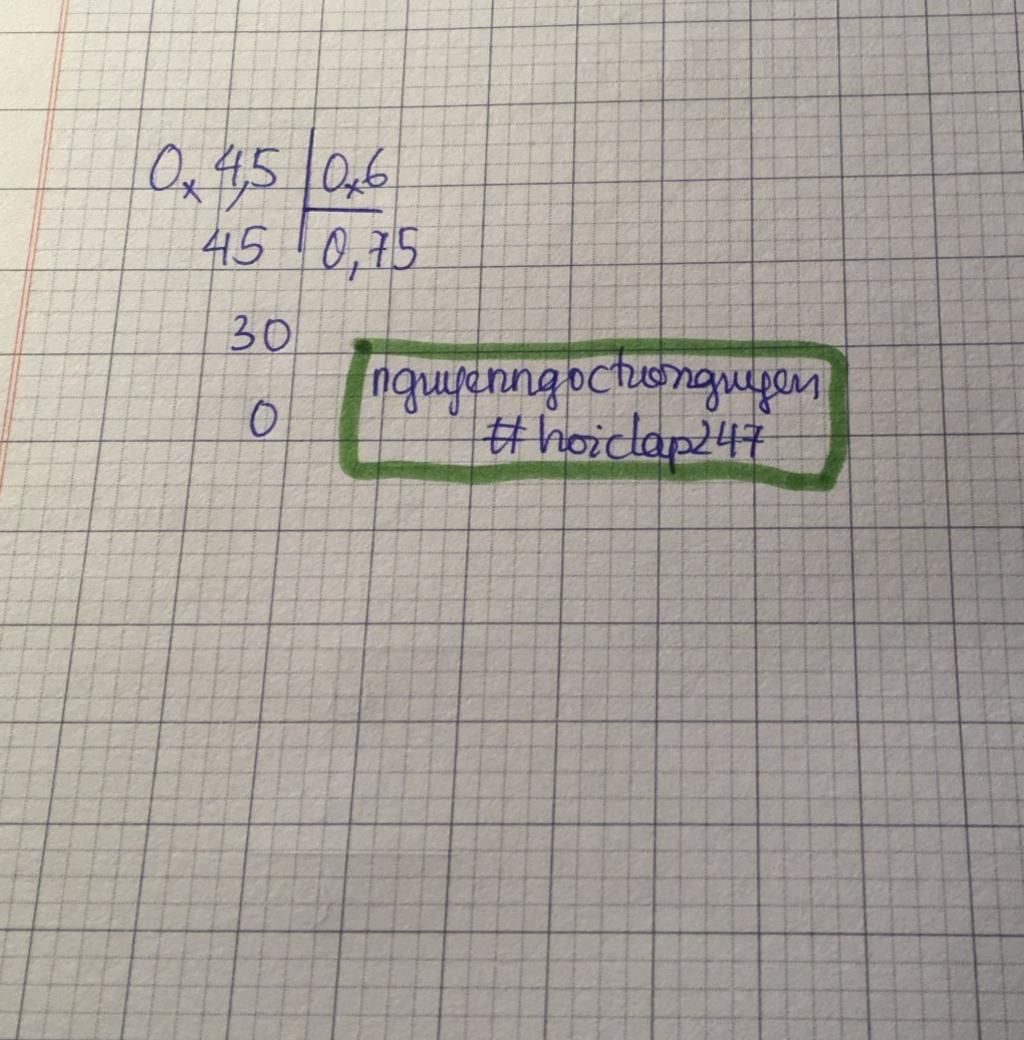 0,4,5 | 0,6
45 | 0,75
30
0
nguyenngoctuongnguyen
# hoidap247